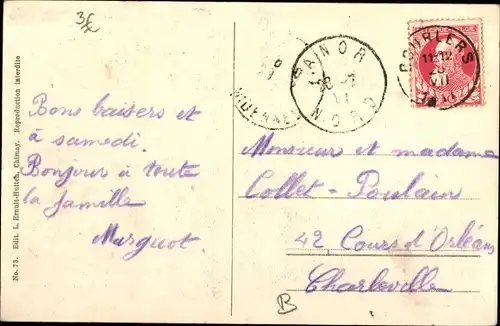 3€
ANOR
28-7
11
NORD
11-12
Bons baisers et
à samedi.
Bonjour à toute
la famille
Marguot.
Monsieur et madame
Collet-Poulain
42 Cours d'Orléans
Charleville
B
No. 73. Edit. L. Ernult-Hutin, Chimay. Reproduction interdite